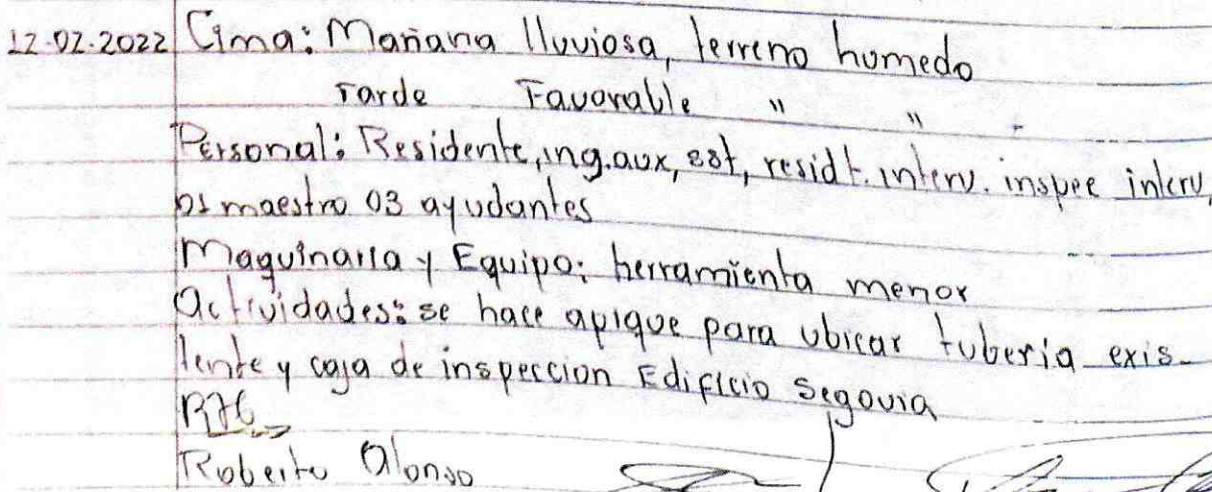 12-02-2022 Cima: Mañana lluviosa, terreno humedo
Tarde Favorable " "
Personal: Residente, ing. aux, est, residt. interv. inspec interv,
01 maestro 03 ayudantes
Maquinaria y Equipo: herramienta menor
Actividades: se hace apique para ubicar tuberia exis-
tente y caja de inspeccion Edificio Segovia
Roberto Alonso